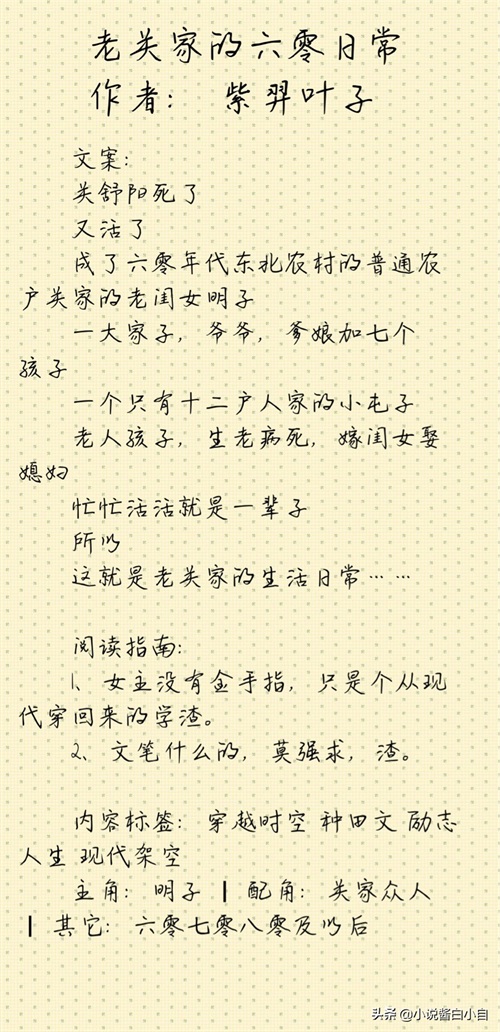 老关家的六零日常
作者： 紫羿叶子
文案：
关舒阳死了
又活了
成了六零年代东北农村的普通农
户关家的老闺女明子
一大家子，爷爷，爹娘加七个
孩子
一个只有十二户人家的小屯子
老人孩子，生老病死，嫁闺女娶
媳妇
忙忙活活就是一辈子
所以
这就是老关家的生活日常……
阅读指南：
1、女主没有金手指，只是个从现
代穿回来的学渣。
2、文笔什么的，莫强求，渣。
内容标签： 穿越时空 种田文 励志
人生 现代架空
主角： 明子 ┃ 配角： 关家众人
┃ 其它： 六零七零八零及以后
头条 @小说酱白小自